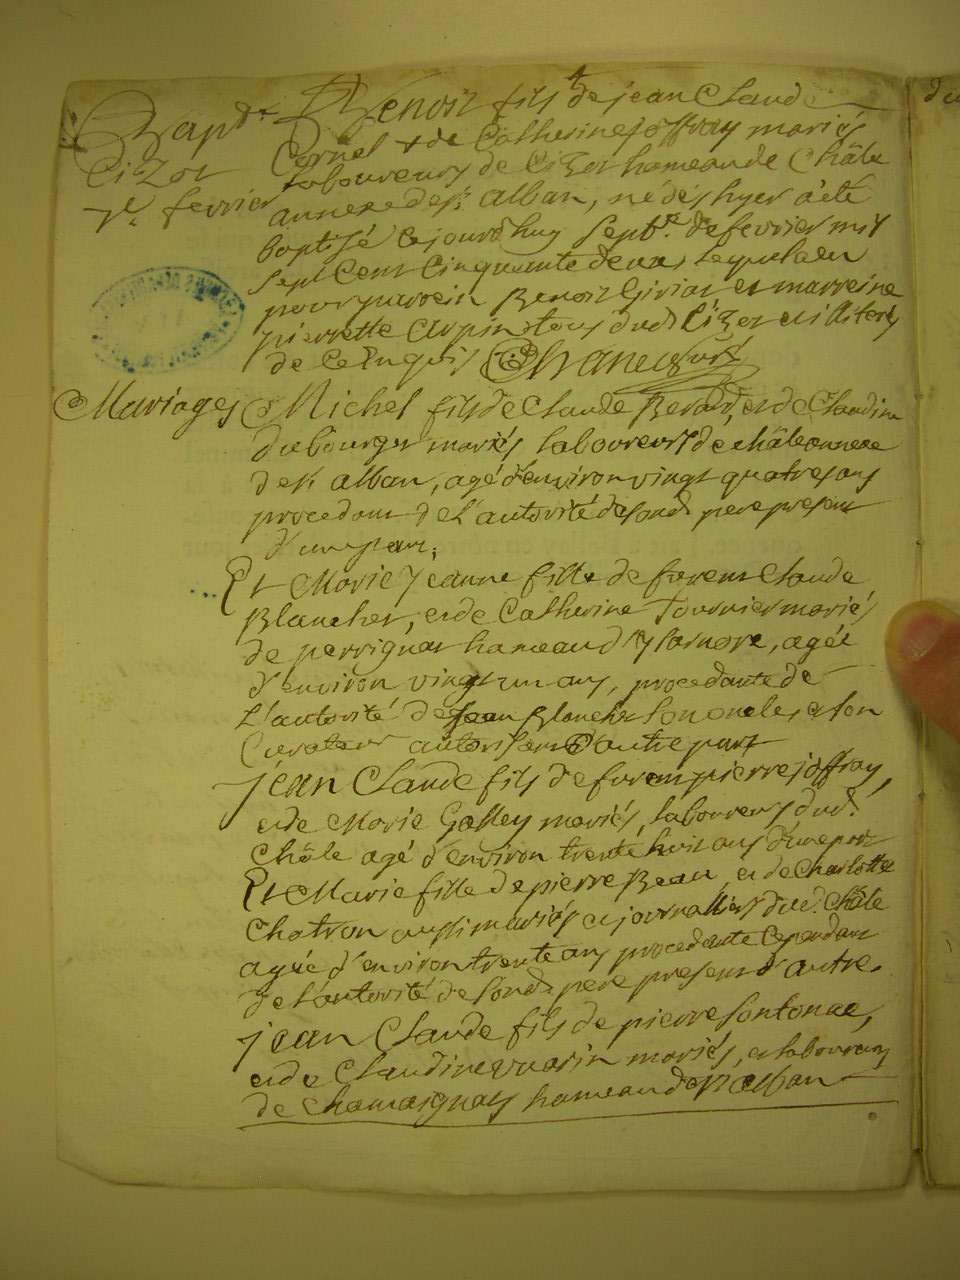 Bapt.e
Cizot
7.e fevrier
Benoit fils de jean Claude
Cornel & de Catherine joffray mariés
laboureurs de Cizot hameau de Châle
annexe de st. alban, né dès hyer à été
baptisé ce jourdhuy sept.e de fevrier mil
sept Cent Cinquante deux
pour parrein Benoit Giriat et marreine
pierrette Arpin tous dud. Cizot et illiterés
de ce Enquis
Mariages
Michel fils de Claude Berard, et de Claudine
dubourget mariés laboureurs de châle annexe
de st. alban, agé d'environ vingt quatre ans
procedant de L'autorité de sond. pere present
d'une part;
Et Marie jeanne fille de furent Claude
Blanchet, et de Catherine Tournier mariés
de perrignat hameau d'yzernore, agée
d'environ vingt un ans, procedante de
L'autorité de jean Blanchet son oncle, et son
Curateur autorisant d'autre part
jean Claude fils de furent pierre joffray,
et de Marie Galley mariés, laboureurs dud.
Châle agé d'environ trente huit ans d'une part
Et Marie fille de pierre Beau, et de Charlotte
Chatron aussi mariés et journalliers dud. Châle
agée d'environ trente ans procedante Cependant
de L'autorité de sond. pere present d'autre.
jean Claude fils de pierre fontonae,
et de Claudine vuarin mariés, et laboureurs
de Chamagnat hameau de st alban